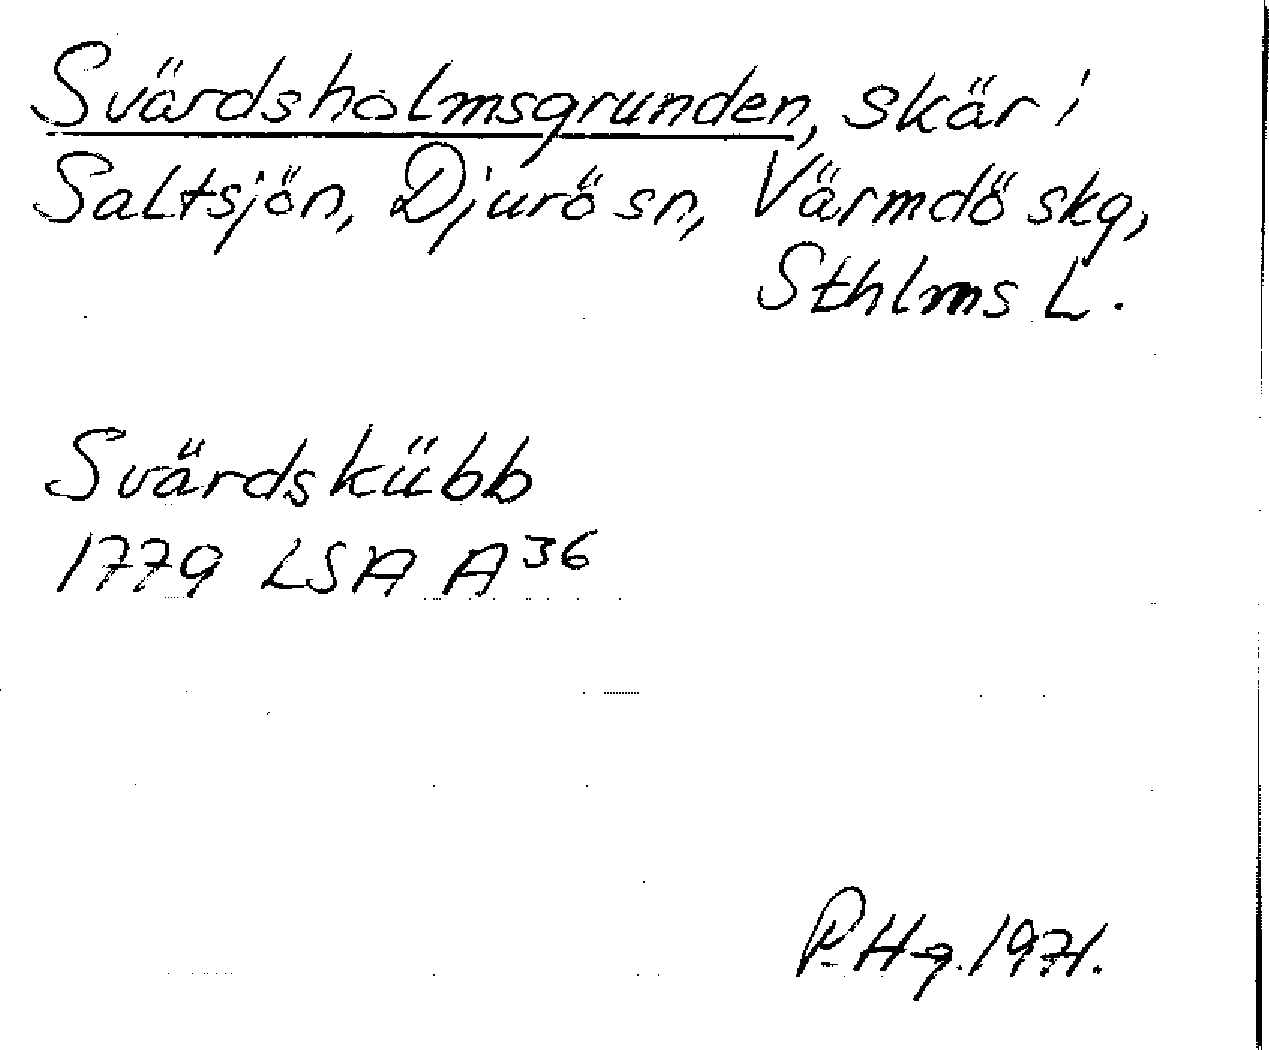 Svärdsholmsgrunden, skär i
Saltsjön, Djurö sn, Värmdö skg,
Sthlms L.
Svärdskübb
1779 LSA A³⁶
P. Hg. 1971.